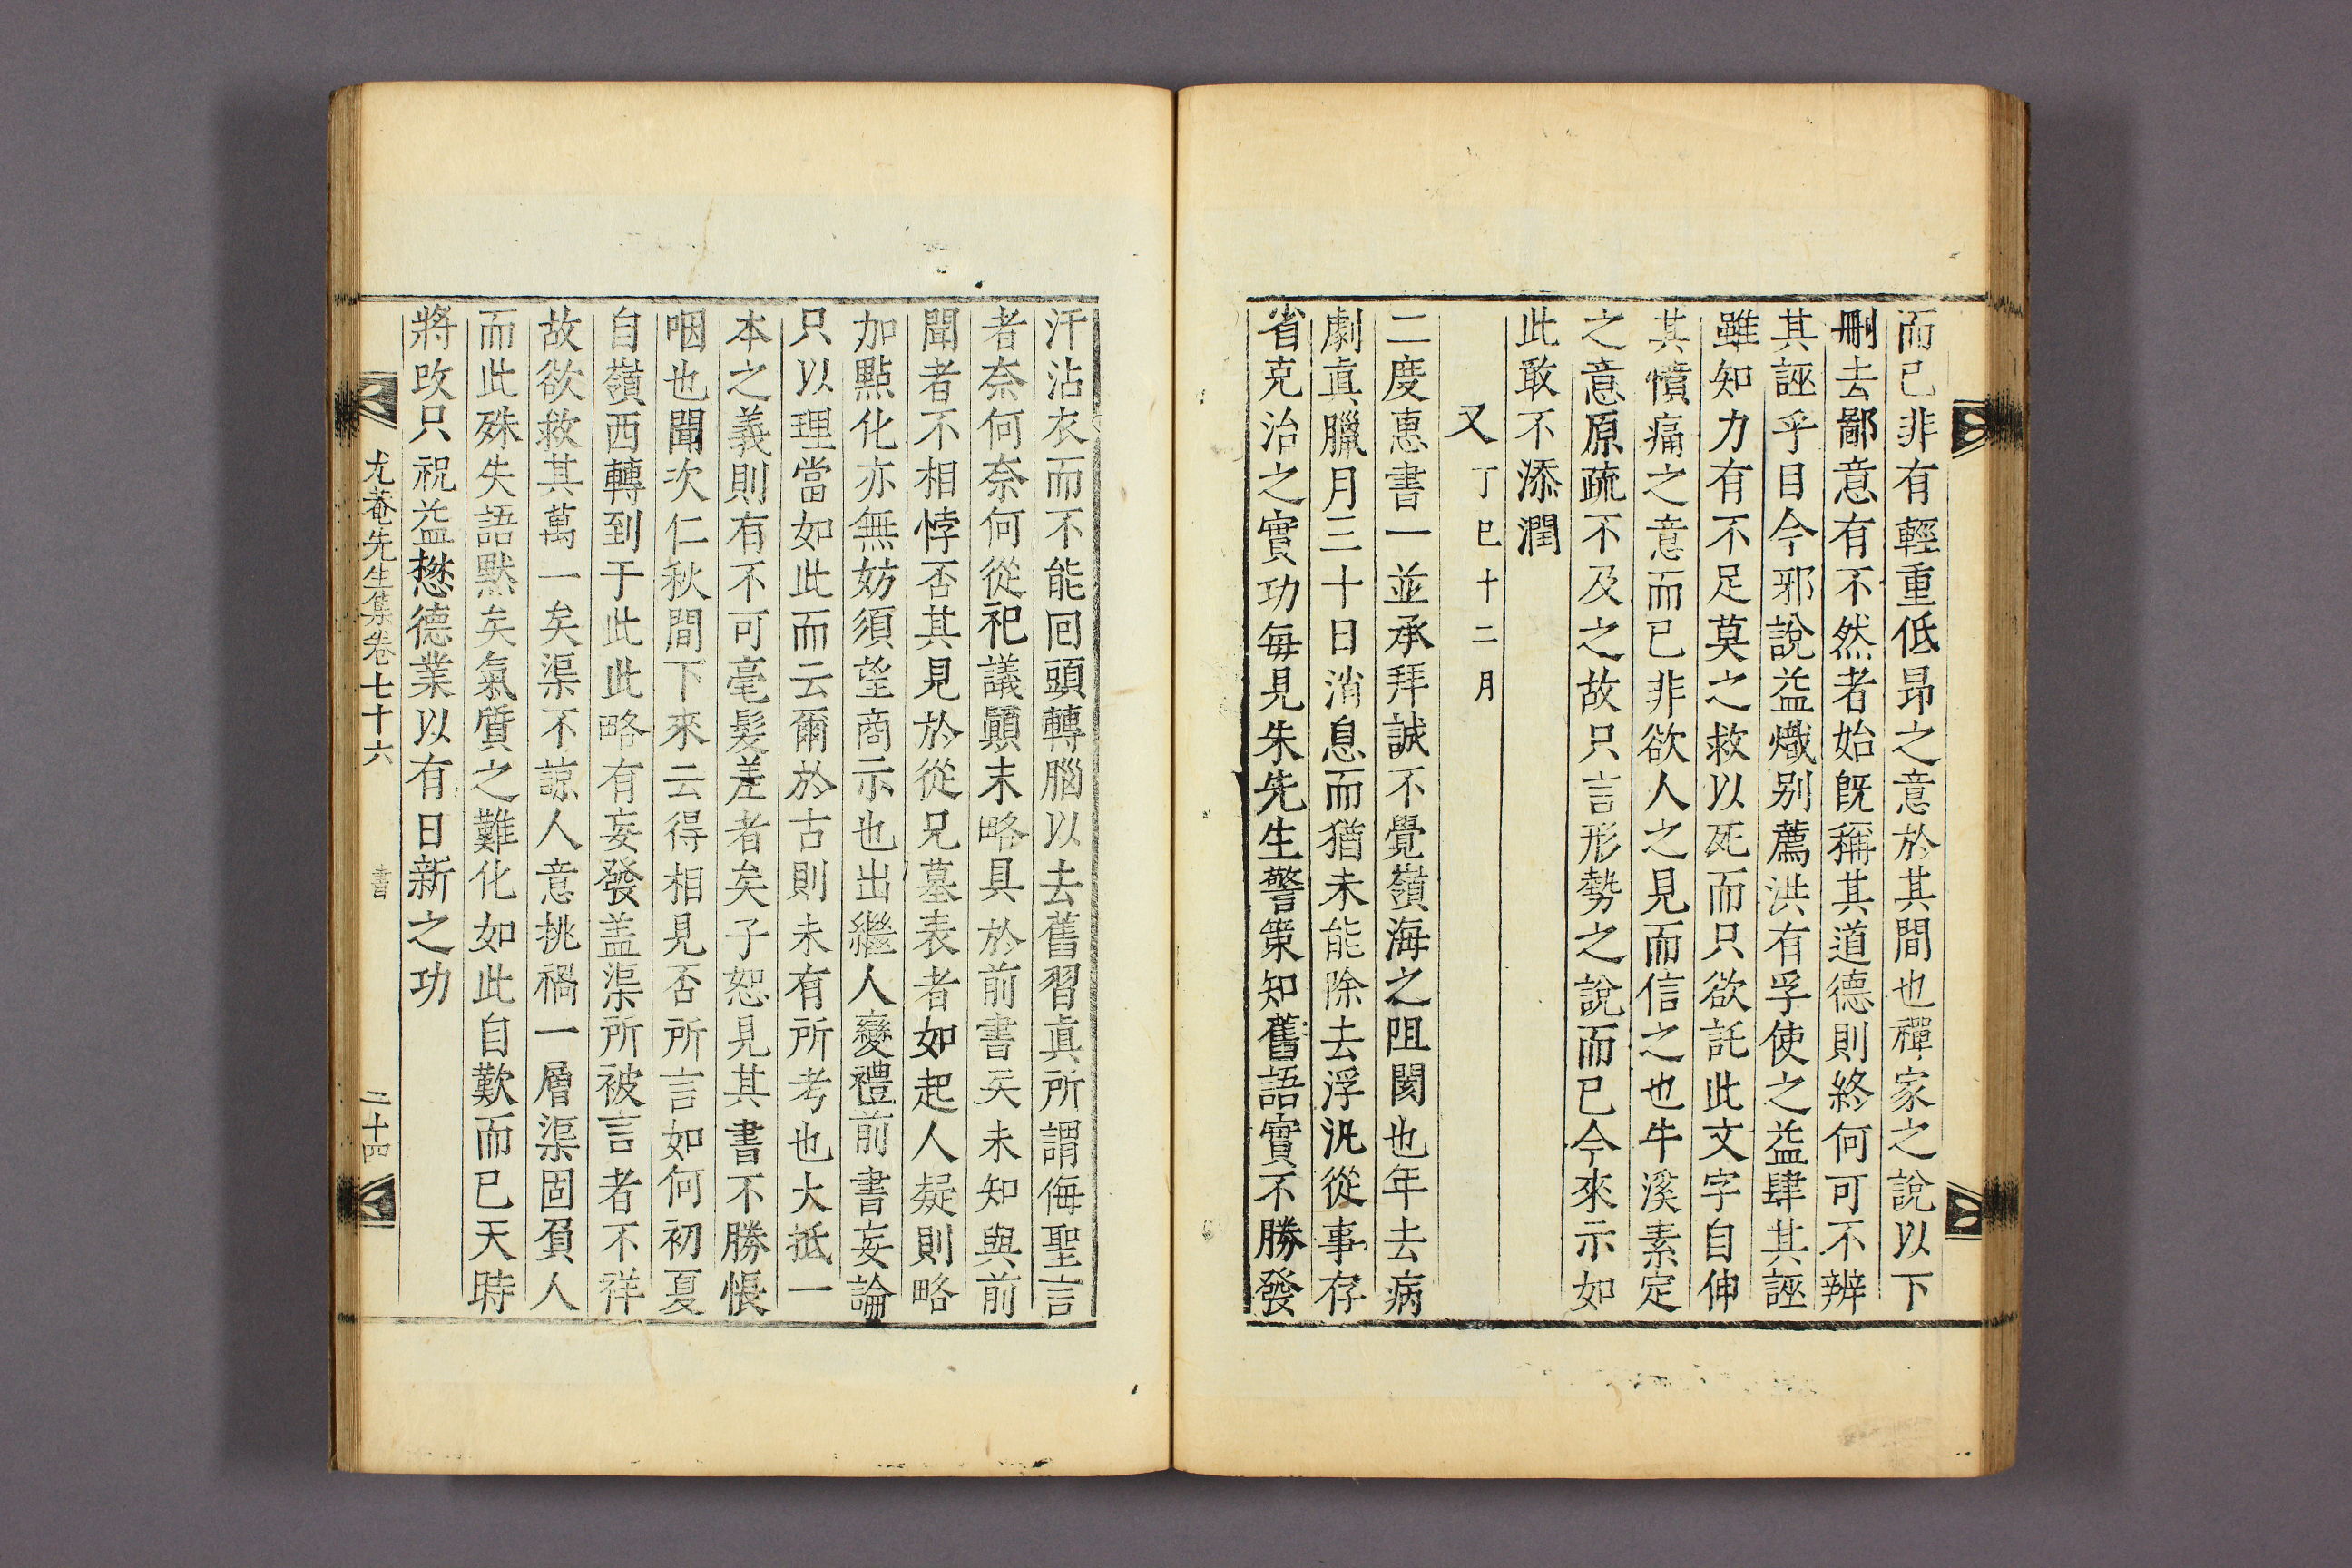 而已非有輕重低昂之意於其間也禪家之說以下
刪去鄙意有不然者始旣稱其道德則終何可不辨
其誣乎目今邪說益熾別薦洪有孚使之益肆其誣
雖知力有不足莫之救以死而只欲託此文字自伸
其憤痛之意而已非欲人之見而信之也牛溪素定
之意原疏不及之故只言形勢之說而已今來示如
此敢不添潤
又丁巳十二月
二度惠書一並承拜誠不覺嶺海之阻閡也年去病
劇眞臘月三十日消息而猶未能除去浮汎從事存
省克治之實功每見朱先生警策知舊語實不勝發
汗沾衣而不能回頭轉腦以去舊習眞所謂侮聖言
者奈何奈何從祀議顚末略具於前書矣未知與前
聞者不相悖否其見於從兄墓表者如起人疑則略
加點化亦無妨須望商示也出繼人變禮前書妄論
只以理當如此而云爾於古則未有所考也大抵一
本之義則有不可毫髮差者矣子恕見其書不勝悵
咽也聞次仁秋間下來云得相見否所言如何初夏
自嶺西轉到于此此略有妄發盖渠所被言者不祥
故欲救其萬一矣渠不諒人意挑禍一層渠固負人
而此殊失語默矣氣質之難化如此自歎而已天時
將改只祝益懋德業以有日新之功
尤菴先生集卷七十六 書 二十四